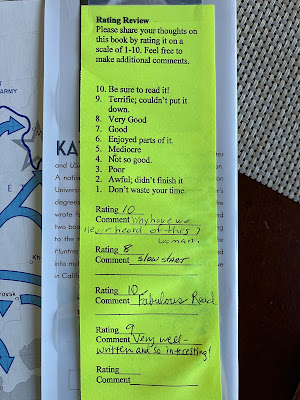 Rating Review
Please share your thoughts on
this book by rating it on a
scale of 1-10. Feel free to
make additional comments.
10. Be sure to read it!
9. Terrific; couldn't put it
down.
8. Very Good
7. Good
6. Enjoyed parts of it.
5. Mediocre
4. Not so good.
3. Poor
2. Awful; didn't finish it
1. Don't waste your time.
Rating 10
Comment Why have we
never heard of this
woman?
Rating 8
Comment slow start
Rating 10
Comment Fabulous Read
Rating 9
Comment Very well-
written and so interesting!
Rating
Comment
ARMY
E
KA
and USA
A native
Univers
degrees
wrote f
two boo
to the
Huntre
into mul
in Calif